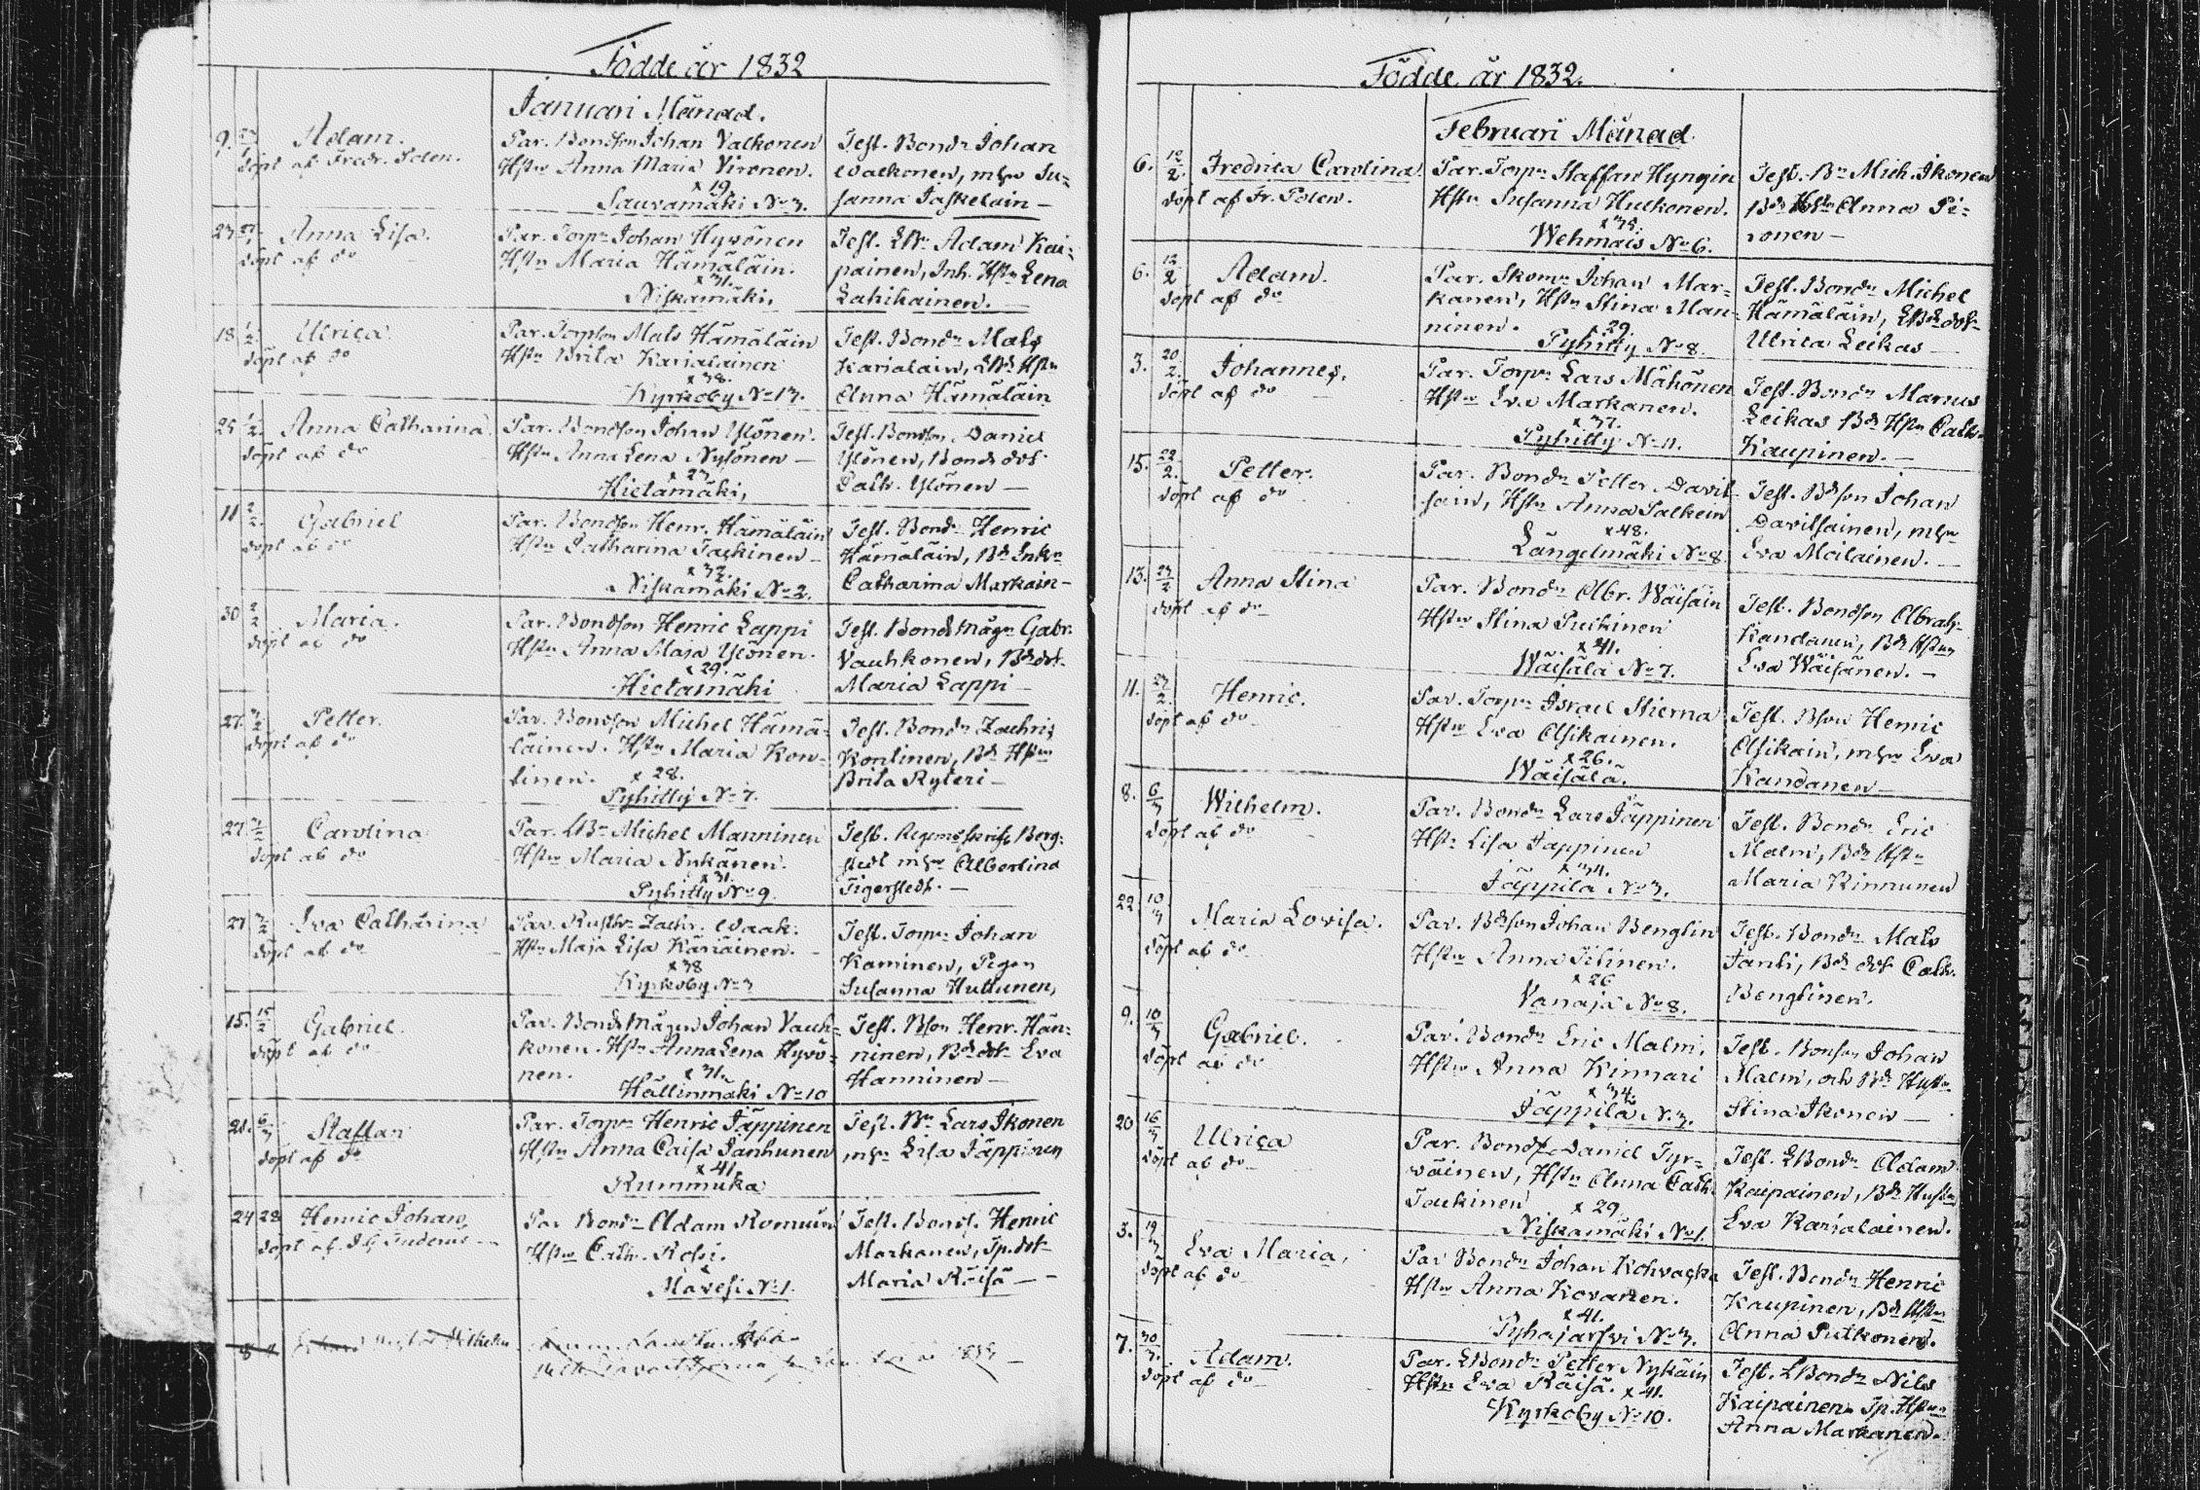 Födde år 1832
Januari Månad.
9. 23/1 Adam.
döpt af Fredr. Polen.
Par. Bondson Johan Valkonen
Hstr Anna Maria Vironen.
x 19.
Sauvamäki No 3.
Test. Bondn Johan
Walkonen, mhu Su=
sanna Paskelain –
23 27/1 Anna Lisa.
döpt af do
Par. Torpn Johan Hyvönen
Hstn Maria Hämäläin.
x 31.
Niskamäki.
Test. LBn Adam Kai=
painen, Inh. Hstn Lena
Lahikainen. –
18 1/2 Ulrica
döpt af do
Par. Torpson Mats Hämäläin
Hstn Brita Karialainen
x 38.
Kyrkoby No 13.
Test. Bondn Mats
Karialain, LBd Hstn
Anna Hämäläin
25 1/2 Anna Catharina
döpt af do
Par. Bondson Johan Ylönen.
Hstn Anna Lena Nylönen –
x 23.
Hietämäki,
Test. Bondson Daniel
Ylönen, Bonde dot.
Cath. Ylönen –
11 2/2 Gabriel
döpt af do
Par. Bondson Henr. Hämäläin
Hstn Catharina Tackinen –
x 32.
Niskamäki No 2.
Test. Bondn Henric
Hämäläin, Bd Enkn
Catharina Markain –
30 2/2 Maria.
döpt af do
Par. Bondson Henric Lappi
Hstn Anna Maja Ylönen.
x 29.
Hietamäki
Test. Bonds Mågn Gabr.
Vauhkonen, Bd dot.
Maria Lappi –
27 3/2 Petter.
döpt af do
Par. Bondson Michel Hämä=
läinen. Hstn Maria Kon=
tinen. x 28.
Pyhitty No 7.
Test. Bondn Zachris
Kontinen, Bd Hstn
Brita Ryteri –
27 3/2 Carolina
döpt af do
Par. LBn Michel Manninen
Hstn Maria Nykänen.
x 31.
Pyhitty No 9.
Test. Regemtsskrifv Berg=
stedt mhu Albertina
Tigerstedt. –
27 3/2 Eva Catharina
döpt af do
Par. Rusthn Zachr. Waak.
Hstn Maja Lisa Käriäinen.
x 38
Kyrkoby No 3
Test. Torpn Johan
Kaminen, Pigan
Susanna Huttunen,
15. 15/2 Gabriel.
döpt af do
Par. Bonds Mågen Johan Vauh=
konen. Hstn Anna Lena Hyvö=
nen. x 31.
Hällinmäki No 10
Test. Bson Henr. Hän=
ninen, Bd dot Eva
Hanninen –
21. 6/3 Staffan
döpt af do
Par. Torpn Henric Jäppinen
Hstn Anna Caisa Janhunen
x 41
Rummuka
Test. Bn Lars Ikonen
mhu Lisa Jäppinen
24 28 Henric Johan,
döpt af
Par Bondn Adam Romuin
Hstn Cath. Rossi.
Mavesi No 1.
Test. Bonds. Henric
Markanen, Tp. dot
Maria Räisä –
Födde år 1832.
Februari Månad
6. 12/2 Fredrica Carolina
döpt af Fr. Polen.
Par. Torpn Staffan Hyngin
Hstn Susanna Hulkonen.
x 35.
Wehmais No 6.
Test. Bn Mich. Ikonen
Bds Hstn Anna Pi=
ronen –
6. 12/2 Adam.
döpt af do
Par. Skomn Johan Mar=
kanen, Hstn Stina Man=
ninen. x 29.
Pyhitty No 8.
Test. Bondn Michel
Hämäläin, LBd dot
Ulrica Leikas –
3. 20/2 Johannes.
döpt af do
Par. Torpn Lars Mähönen
Hstn Eva Markanen.
x 37.
Pyhitty No 11.
Test. Bondn Marcus
Leikas Bd Hstn Cath.
Kaupinen. –
15. 22/2 Petter.
döpt af do
Par. Bondn Petter Davit=
sain, Hstn Anna Salkein
x 48.
Längelmäki No 8
Test. Bdson Johan
Davitsainen, mhu
Eva Moilainen. –
13. 23/2 Anna Stina
döpt af do
Par. Bondn Abr. Wäisäin
Hstn Stina Puikinen
x 41.
Wäisälä No 7.
Test. Bondson Abrah.
Kandanen, Bd Hstrn
Eva Wäisänen. –
11. 27/2 Henric.
döpt af do
Par. Torpn Israel Stierna
Hstn Eva Asikainen.
x 26.
Wäisälä.
Test. Bson Henric
Asikain, mhu Eva
Kandanen –
8. 6/3 Wilhelm.
döpt af do
Par. Bondn Lars Jäppinen
Hstn Lisa Jäppinen
x 34.
Jäppilä No 3.
Test. Bondn Eric
Malm, Bds Hstn
Maria Kinnunen
22 10/3 Maria Lovisa.
döpt af do
Par. Bdson Johan Benglin
Hstn Anna Pitinen.
x 26
Vanaja No 8.
Test. Bondn Mats
Janti, Bds dot Cath.
Benglinen.
9. 10/3 Gabriel.
döpt af do
Par. Bondn Eric Malm,
Hstn Anna Kinnari
x 34.
Jäppilä No 3.
Test. Bonson Johan
Malm, och Bd Hustr
Stina Ikonen –
20 16/3 Ulrica
döpt af do
Par. Bonds. Daniel Tyr=
väinen, Hstn Anna Cath.
Tackinen x 29
Niskamäki No 1.
Test. LBondn Adam
Kaipainen, Bds Hustru
Eva Karialainen.
3. 19/3 Eva Maria,
döpt af do
Par Bondn Johan Kohvacka
Hstn Anna Kovanen.
x 41.
Pyhajärfvi No 3.
Test. Bondn Henric
Kaupinen, Bds Hstru
Anna Putkonen.
7. 30/3. Adam.
döpt af do
Par. LBondn Petter Nykäin
Hstn Eva Räisä. x 41.
Kyrkoby No 10.
Test. LBondn Nils
Kaipainen Tp. Hstrn
Anna Markanen.